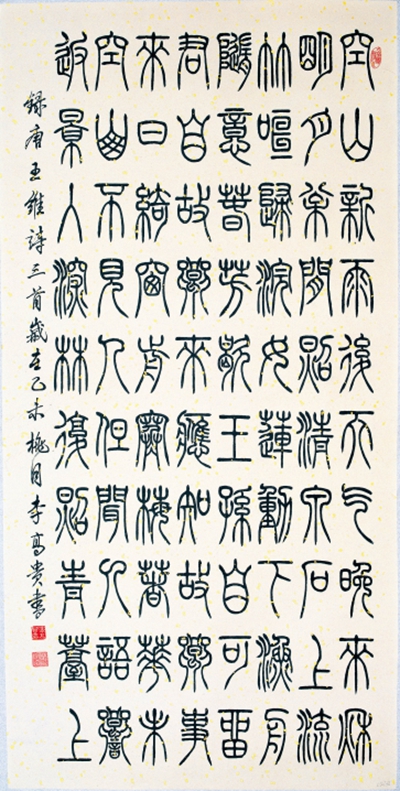 空山新雨後天气晚來秋
明月松間照清泉石上流
竹喧歸浣女蓮動下漁舟
隨意春芳歇王孫自可留
君自故鄉來應知故鄉事
來日綺窗前寒梅著華未
空山不見人但聞人語響
返景入深林復照青苔上
録唐王維詩三首歲在乙未桃月李高貴書